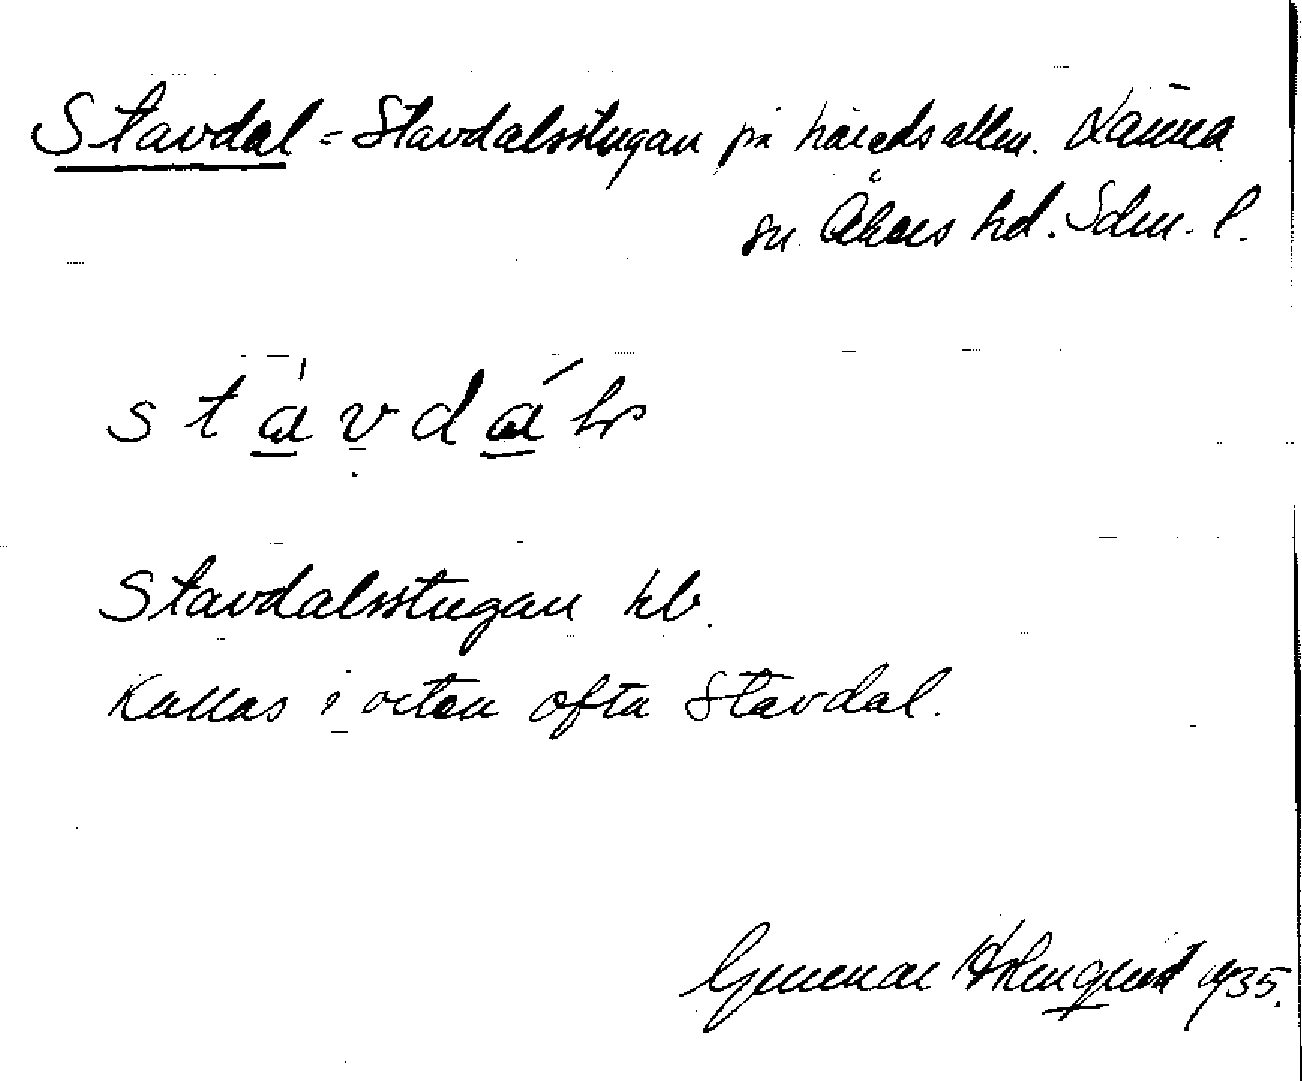 Stavdal = Stavdalsstugan på häradsallm. Länna
sn. Åkers hd. Sdm. l.
stavdal
Stavdalsstugan hb.
Kallas i orten ofta Stavdal.
Gunnar Holmqvist 1935.